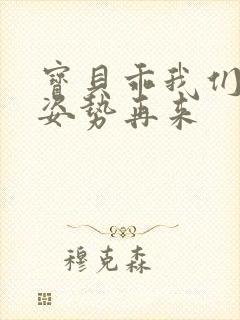 寶貝乖我们
姿勢再来
穆克森